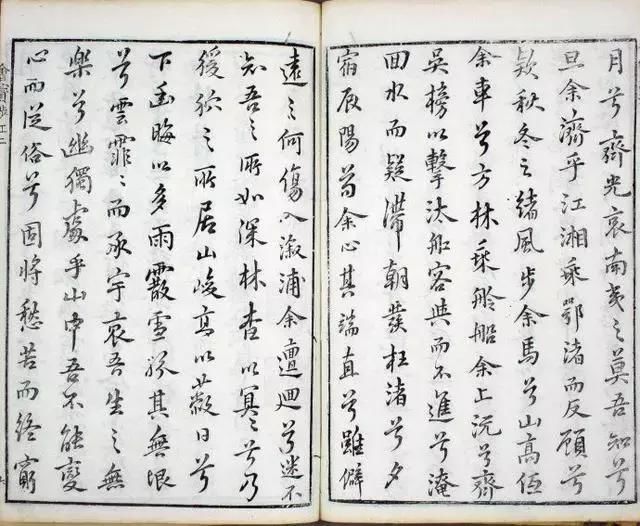 月兮齊光哀南夷之莫吾知兮
旦余濟乎江湘乘鄂渚而反顧兮
欸秋冬之緒風步余馬兮山高低
余車兮方林乘舲船余上沅兮齊
吳榜以擊汰船容與而不進兮淹
回水而疑滯朝發枉渚兮夕
宿辰陽苟余心其端直兮雖僻
遠之何傷入漵浦余邅迴兮迷不
知吾之所如深林杳以冥冥兮乃
猨狖之所居山峻高以蔽日兮
下幽晦以多雨霰雪紛其無垠
兮雲霏霏而承宇哀吾生之無
樂兮幽獨處乎山中吾不能變
心而從俗兮固將愁苦而終窮